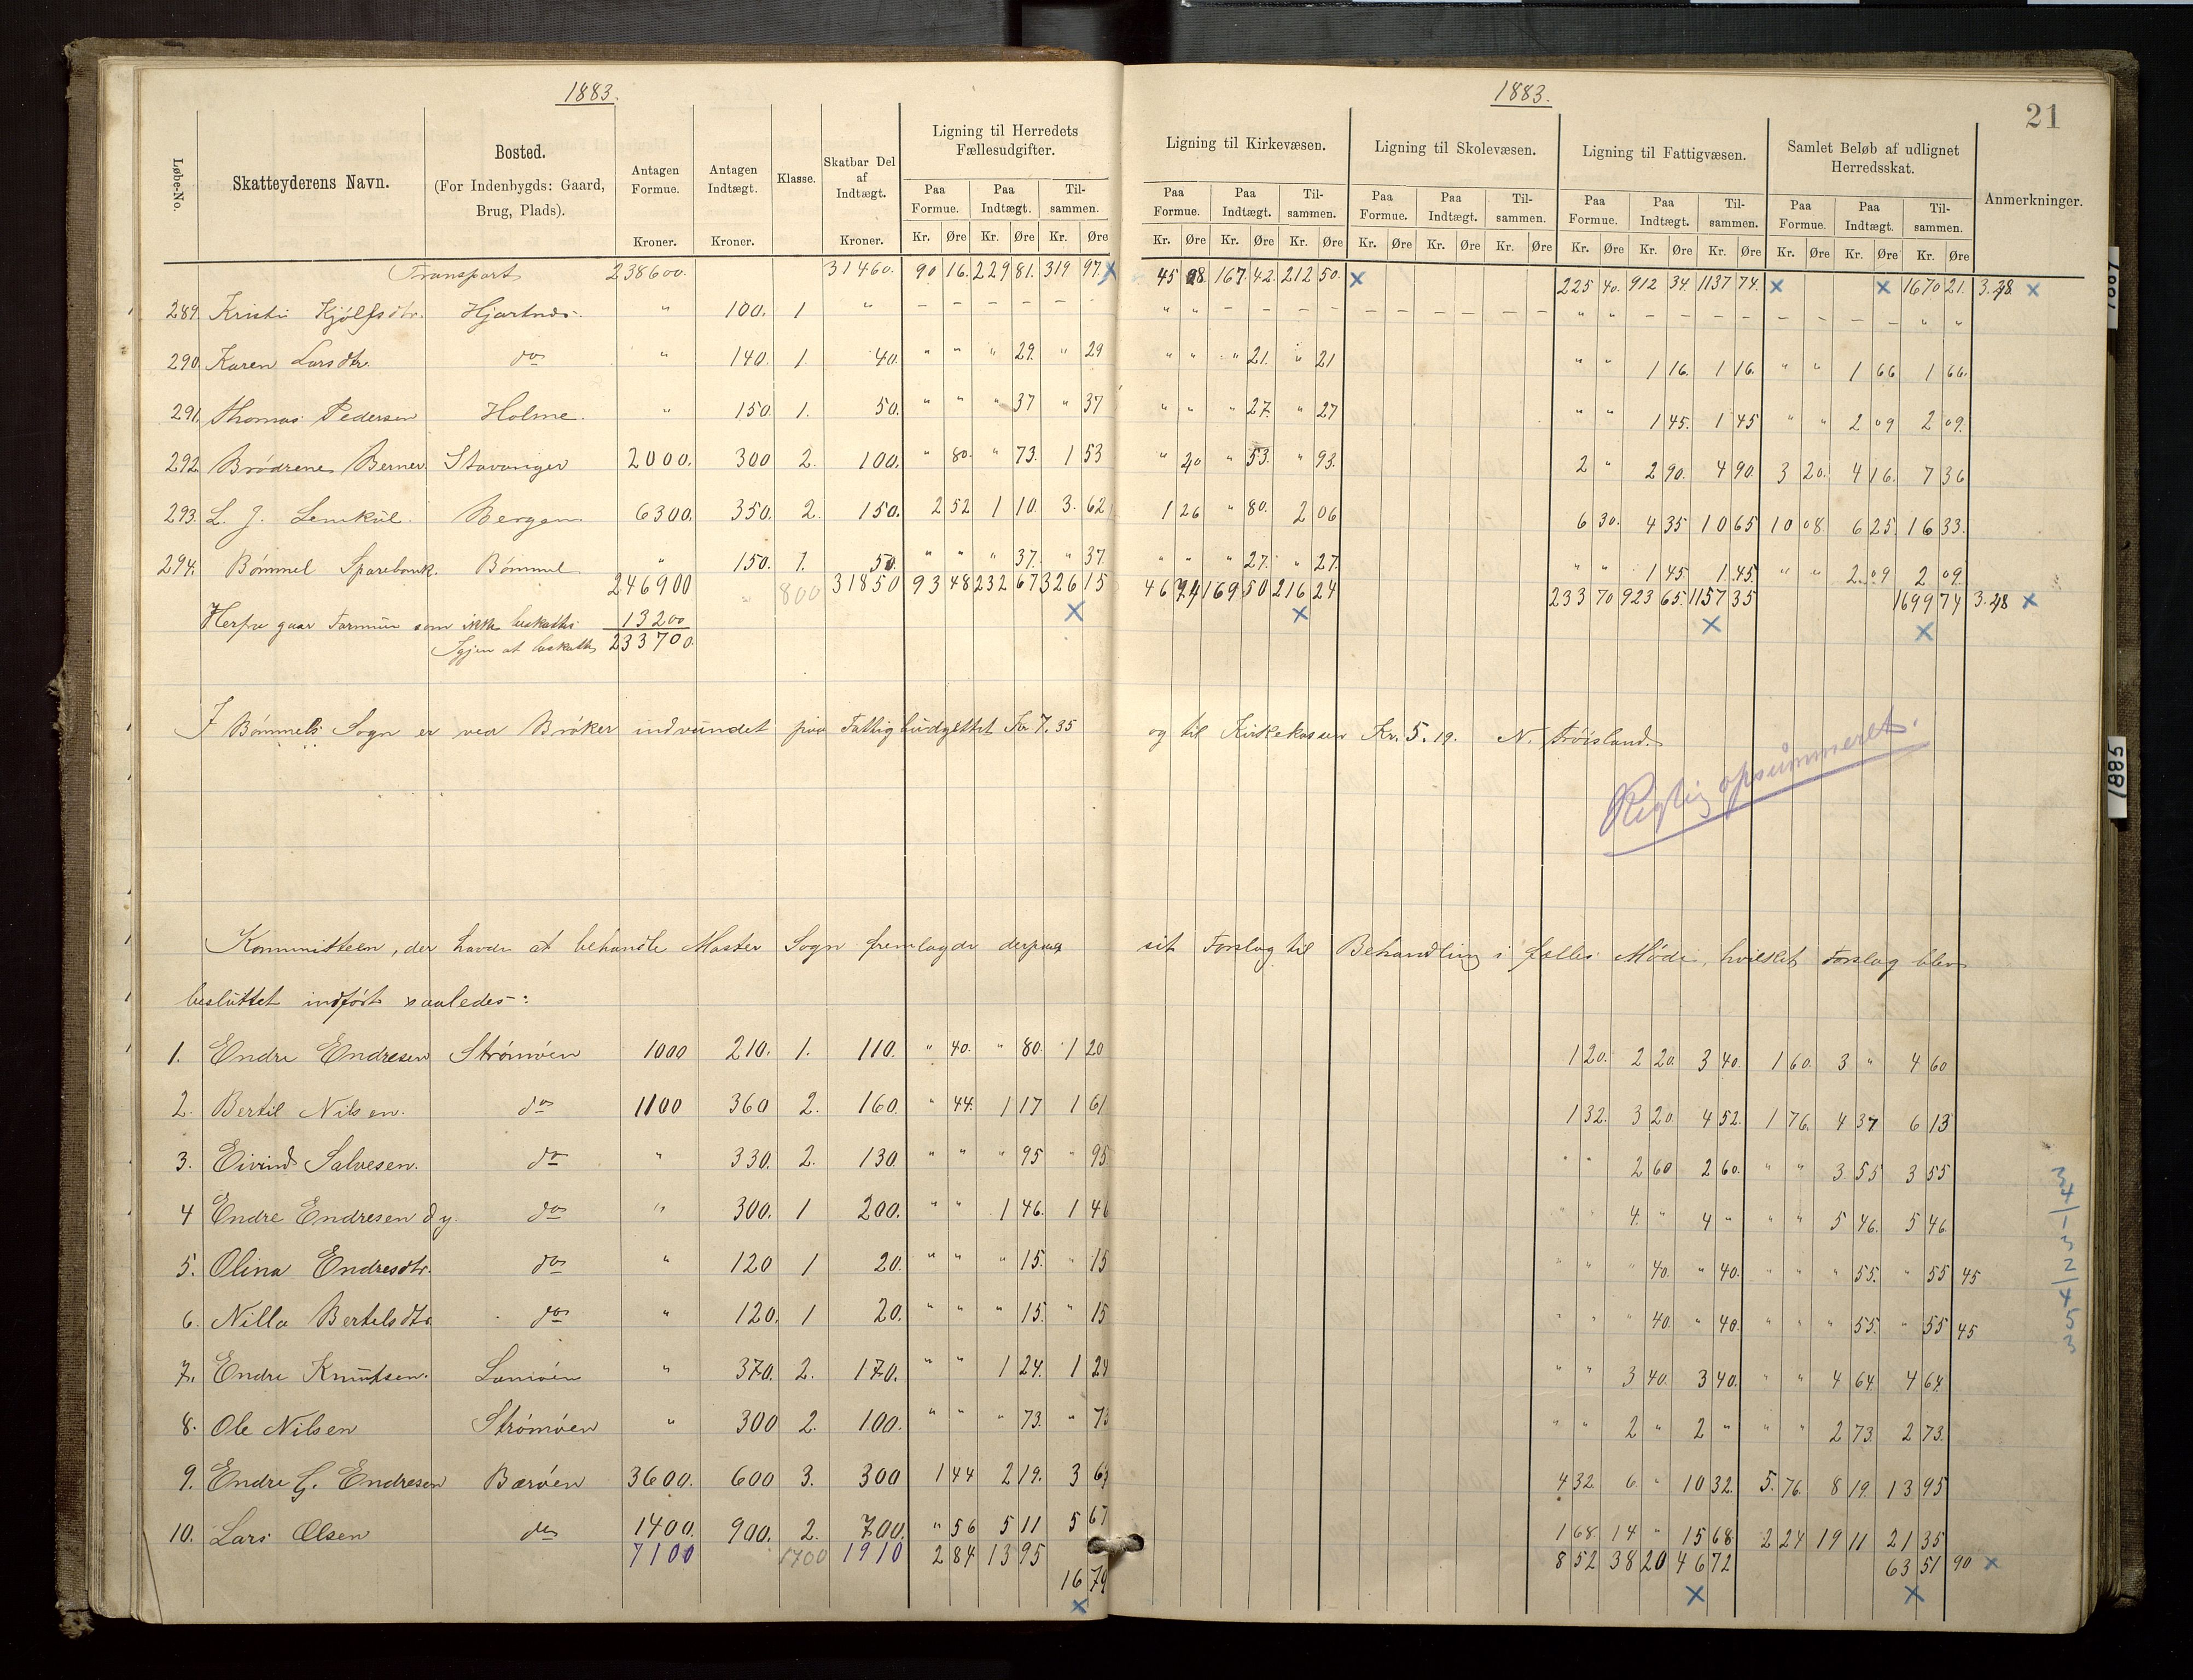 1883.
1883.
21
Løbe-No. Skatteyderens Navn. Bosted. (For Indenbygds: Gaard, Brug, Plads). Antagen Formue. Kroner. Antagen Indtægt. Kroner. Klasse. Skatbar Del af Indtægt. Kroner. Ligning til Herredets Fællesudgifter. Ligning til Kirkevæsen. Ligning til Skolevæsen. Ligning til Fattigvæsen. Samlet Beløb af udlignet Herredsskat. Anmerkninger.
Paa Formue. Paa Indtægt. Til- sammen. Paa Formue. Paa Indtægt. Til- sammen. Paa Formue. Paa Indtægt. Til- sammen. Paa Formue. Paa Indtægt. Til- sammen. Paa Formue. Paa Indtægt. Til- sammen.
Kr. Øre Kr. Øre Kr. Øre Kr. Øre Kr. Øre Kr. Øre Kr. Øre Kr. Øre Kr. Øre Kr. Øre Kr. Øre Kr. Øre Kr. Øre Kr. Øre Kr. Øre
Transport 238600. 31460. 90 16. 229 81. 319 97. x 45 08 167 42. 212 50. x 225 40. 912 34. 1137 74. x x 1670 21. x
289. Kristi Kjølfsdtr. Hjartnes. " 100. 1 " – – – – – – " " – – – – – – – – – – " " – – – – – – – – " "
290. Karen Larsdtr. do " 140. 1. 40. " " " 29. " 29 " " " 21. " 21 " " 1 16. 1 16. " " 1 66 1 66.
291. Thomas Pedersen Holme. " 150. 1. 50. " " " 37 " 37 " " " 27. " 27 " " 1 45. 1 45 " " 2 09 2 09.
292. Brødrene Berner. Stavanger 2000. 300 2. 100. " 80. " 73. 1 53 " 40 " 53. " 93. 2 " 2 90. 4 90. 3 20. 4 16. 7 36
293. L. J. Lemkül. Bergen 6300. 350. 2. 150. 2 52 1 10. 3. 62 1 26 " 80. 2 06 6 30. 4 35 10 65 10 08. 6 25. 16 33.
294. Bømmel Sparebank. Bømmel " 150. 1. 50. " " " 37. " 37. " " " 27. " 27. " " 1 45 1. 45. " " 2. 09 2 09.
246900 " 800 31850 93 48 232 67 326 15 46 74 169 50 216 24 233 70 923 65. 1157 35 1699 74 x
Herfra gaar Formue som ikke beskattes 13200 x x x x
Igjen at beskatte 233700.
I Bømmels Sogn er ved Brøker indvundet paa Fattigbudgettet Kr 7.35 og til Kirkekassen Kr. 5.19. N. Trøisland.
Rigtig opsummeret.
Kommitteen, der havde at behandle Moster Sogn fremlagde derpaa sit Forslag til Behandling i fælles Møde, hvilket Forslag blev
besluttet indført saaledes:
1. Endre Endresen Strømøen 1000 210. 1. 110. " 40. " 80. 1 20 1 20. 2 20. 3 40. 1 60. 3 " 4 60
2. Bertil Nilsen. do 1100 360 2. 160. " 44. 1 17 1 61 1 32. 3 20. 4 52. 1 76. 4 37 6 13
3. Eivind Salvesen. do " 330. 2. 130. " " " 95 " 95 " " 2 60 2 60. " " 3 55 3 55
4 Endre Endresen d y. do " 300. 1 200. " " 1 46. 1 46 " " 4. " 4 " " " 5 46. 5 46.
5. Olina Endresdtr. do " 120 1 20. " " " 15. " 15 " " " 40. " 40. " " " 55. " 55 45
6. Nilla Bertelsdtr do " 120. 1 20. " " " 15. " 15 " " " 40. " 40. " " " 55. " 55 45
7. Endre Knutsen. " 370. 2. 170. " " 1 24. 1 24 " " 3 40. 3 40. " " 4 64. 4 64.
8. Ole Nilsen Strømøen " 300 2. 100. " " " 73. " 73 " " 2 " 2 " " " 2 73. 2 73.
9. Endre G. Endresen Barøen 3600. 600 3. 300 1 44 2 19. 3 63 4 32. 6 " 10 32. 5. 76. 8 19. 13 95
10. Lars Olsen do 1400. 900. 2. 700. " 56 5 11 5 67 1 68. 14 " 15 68. 2 24 19 11 21 35
7100 1700 1910 2 84 13 95 8 52 38 20 46 72 63 51 90 x
16 79
x x x
1885